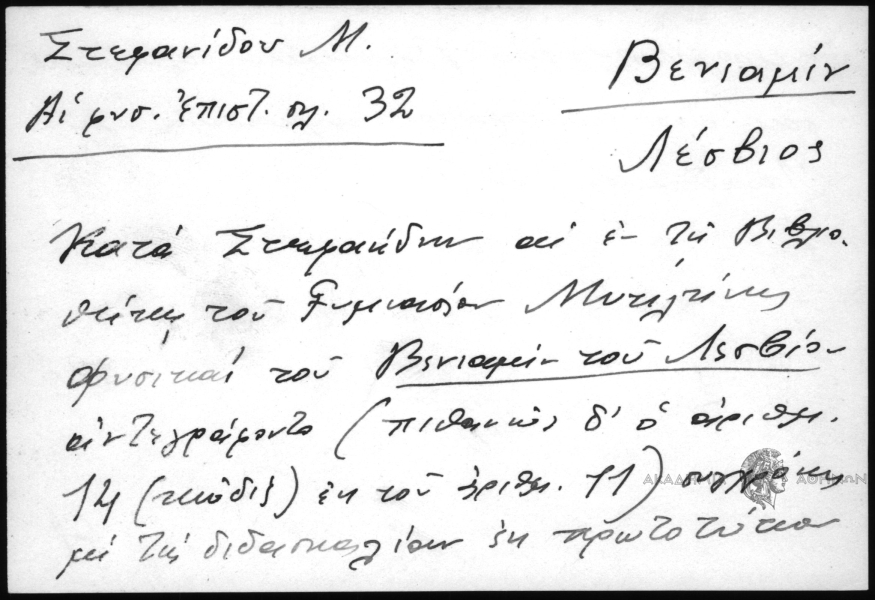 Στεφανίδου Μ.
Αἱ φυσ. Ἐπιστ. σλ. 32
Βενιαμίν
Λέσβιος
Κατὰ Στεφανίδην αἱ ἐν τῇ Βιβλιο-
θήκῃ τοῦ Γυμνασίου Μυτιλήνης
φυσικαὶ τοῦ Βενιαμὶν τοῦ Λεσβίου
ἀντεγράφοντο (πιθανῶς δ' ὁ ἀριθμ.
14 (κώδιξ) ἐκ τοῦ ἀριθμ. 11)
μὲ τῆς διδασκαλίαν ἐκ πρωτοτύπου
ΑΚΑΔΗΜΙΑ ΑΘΗΝΩΝ